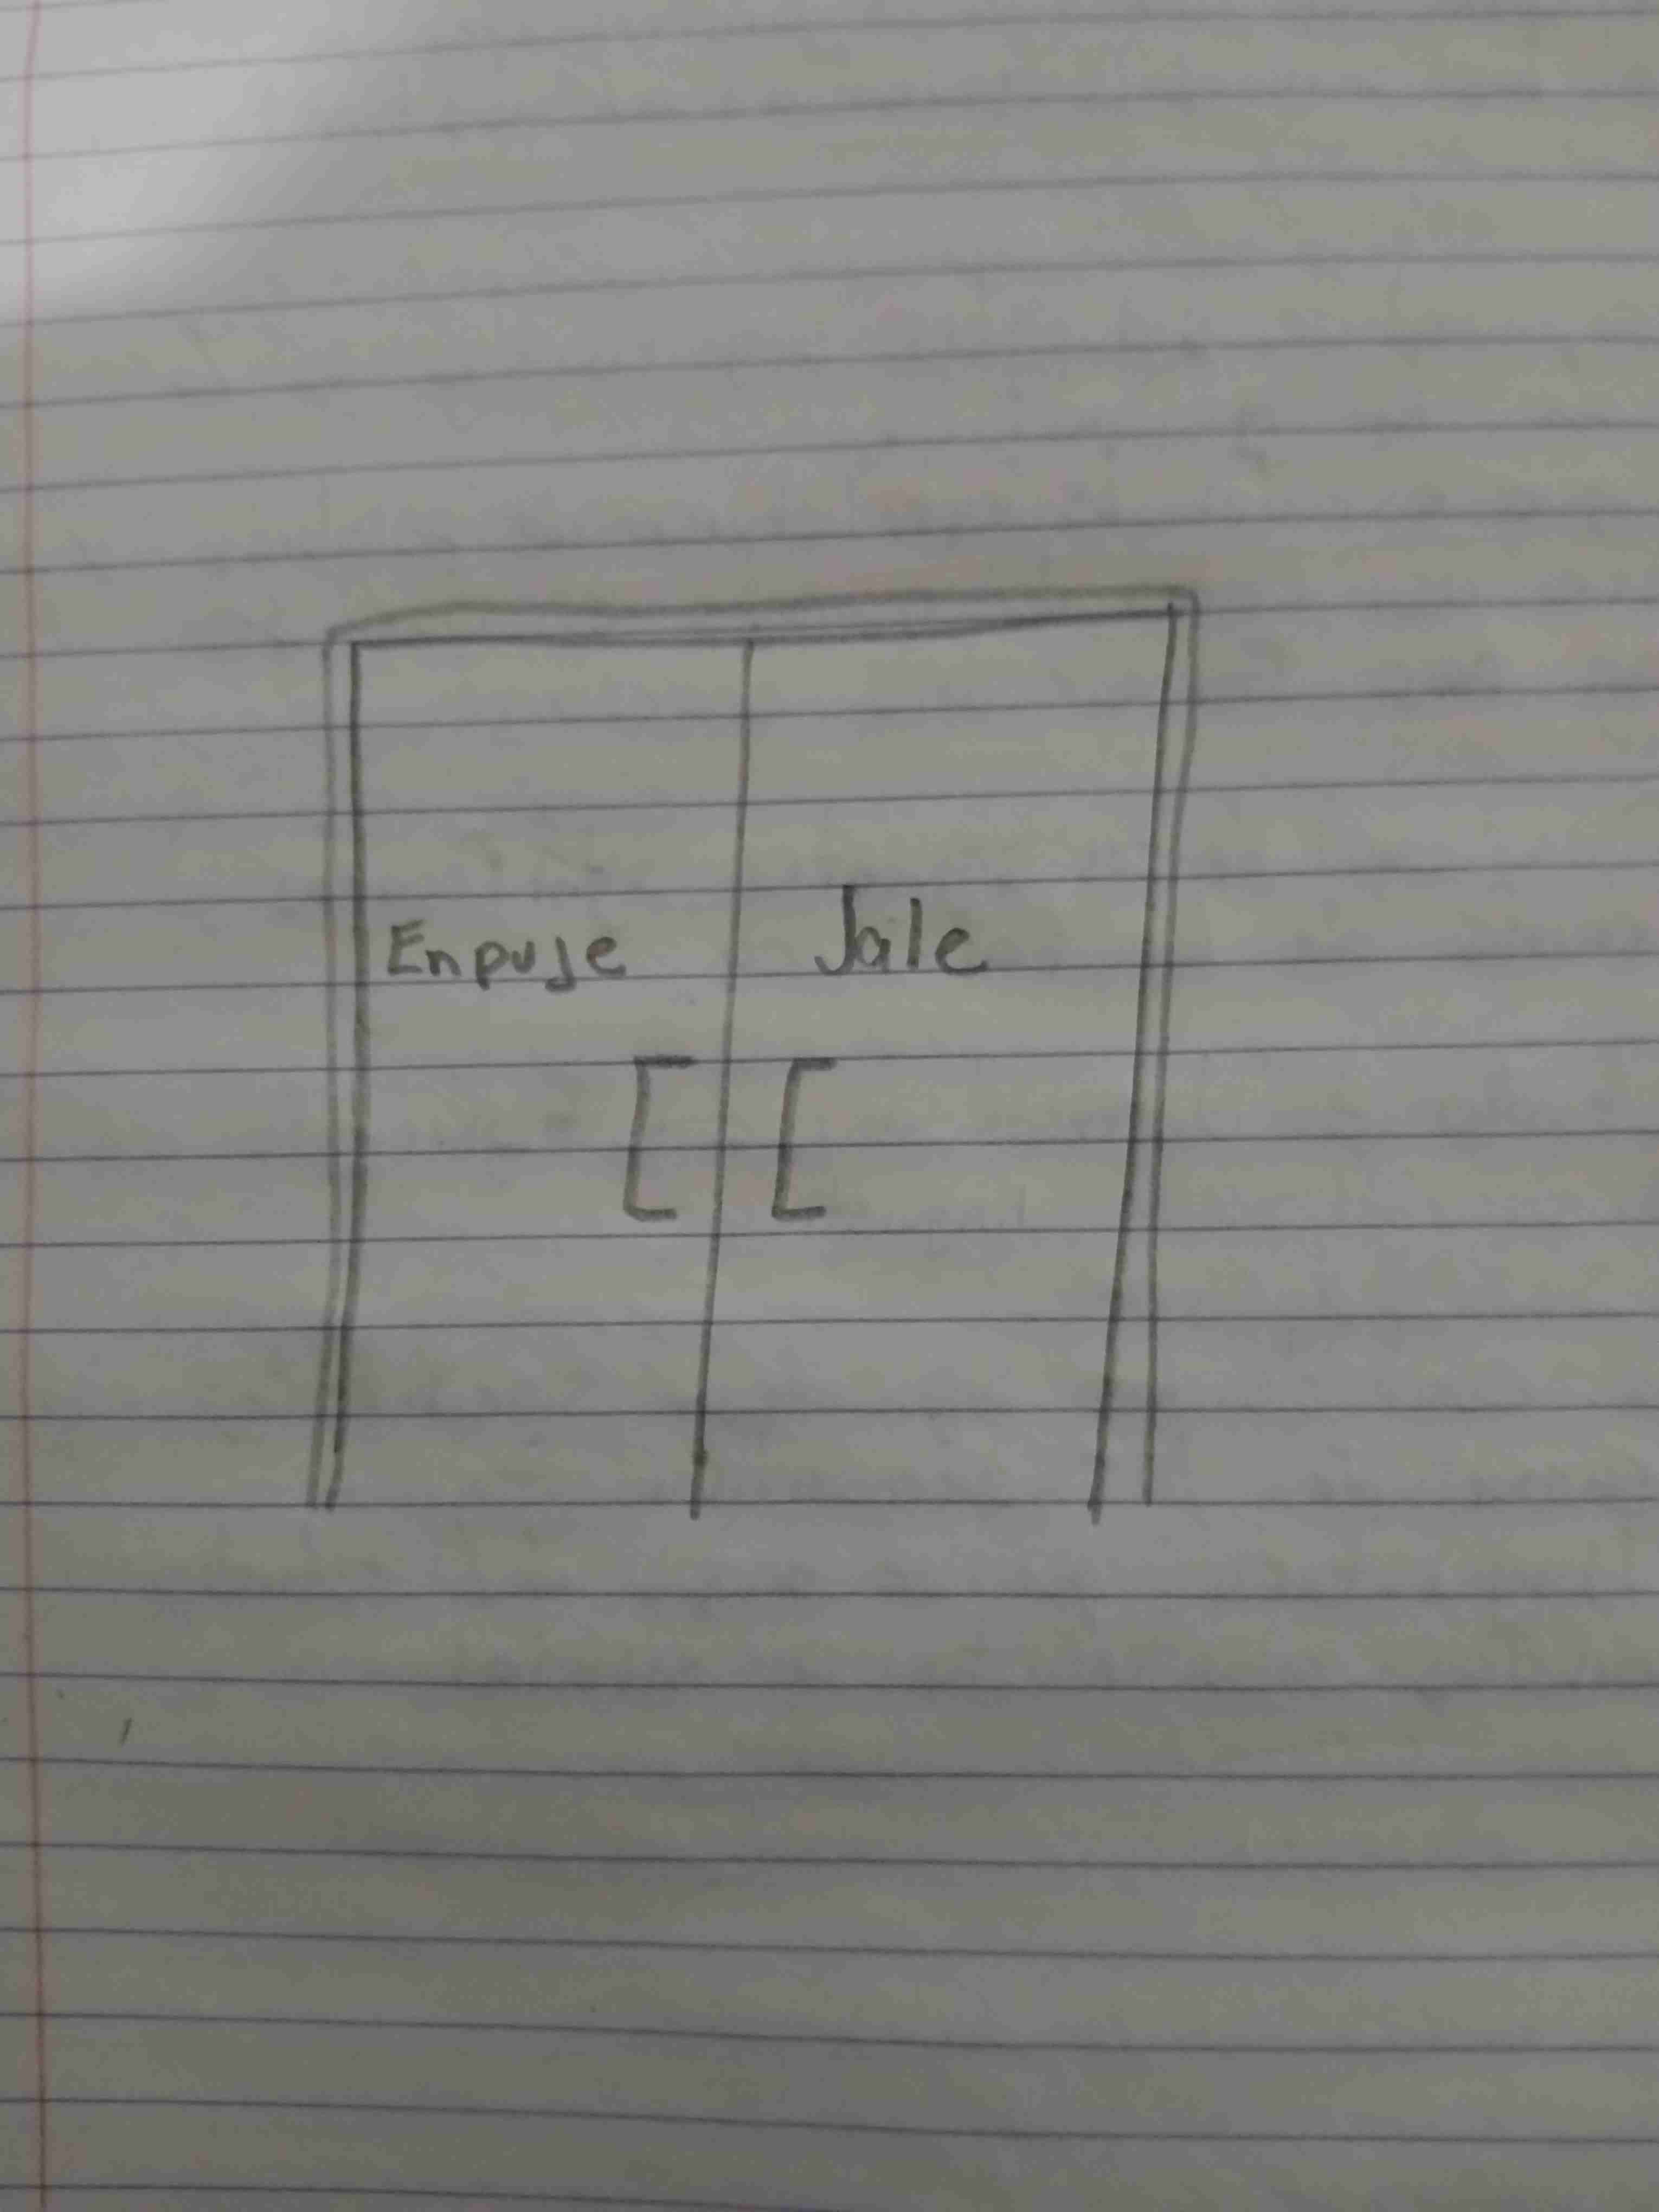 Enpuje Jale